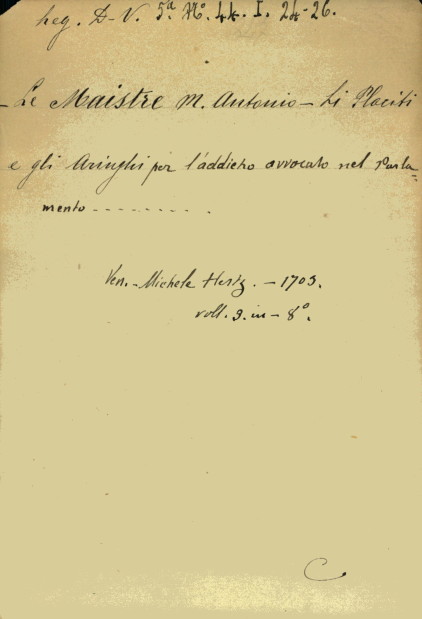 leg. D-V. 5ª Nº. 44. I. 24-26.
- Le Maistre M. Antonio - Li Placiti
e gli Aringhi per l'addietro avvocato nel Parla=
mento - - - - - - - - .
Ven. - Michele Hertz. - 1703.
voll. 3. in - 8º.
C